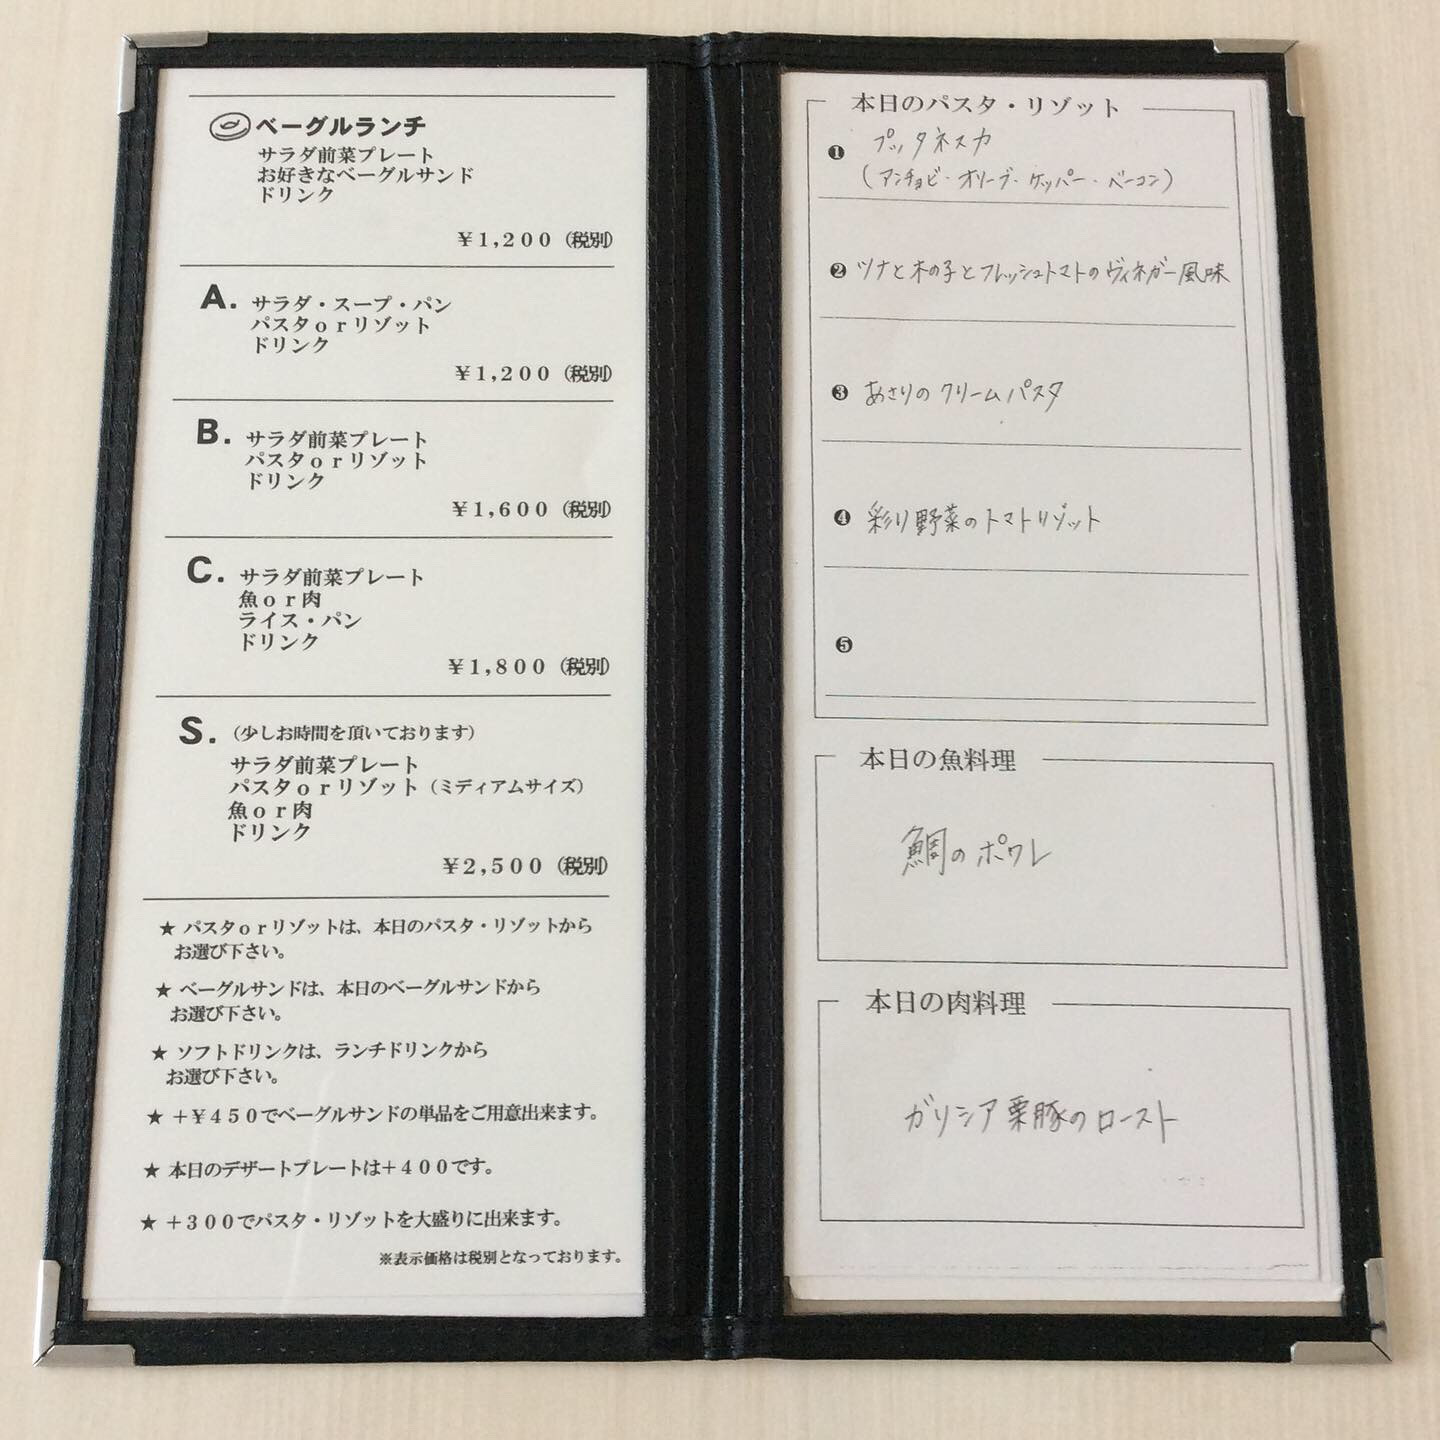 ベーグルランチ
サラダ前菜プレート
お好きなベーグルサンド
ドリンク
¥1,200（税別）
A.
サラダ・スープ・パン
パスタorリゾット
ドリンク
¥1,200（税別）
B.
サラダ前菜プレート
パスタorリゾット
ドリンク
¥1,600（税別）
C.
サラダ前菜プレート
魚or肉
ライス・パン
ドリンク
¥1,800（税別）
S.（少しお時間を頂いております）
サラダ前菜プレート
パスタorリゾット（ミディアムサイズ）
魚or肉
ドリンク
¥2,500（税別）
★ パスタorリゾットは、本日のパスタ・リゾットから
お選び下さい。
★ ベーグルサンドは、本日のベーグルサンドから
お選び下さい。
★ ソフトドリンクは、ランチドリンクから
お選び下さい。
★ +¥450でベーグルサンドの単品をご用意出来ます。
★ 本日のデザートプレートは+400です。
★ +300でパスタ・リゾットを大盛りに出来ます。
※表示価格は税別となっております。
本日のパスタ・リゾット
❶ プッタネスカ
(アンチョビ・オリーブ・ケッパー・ベーコン)
❷ ツナと木の子とフレッシュトマトのヴィネガー風味
❸ あさりのクリームパスタ
❹ 彩り野菜のトマトリゾット
❺
本日の魚料理
鯛のポワレ
本日の肉料理
ガリシア栗豚のロースト